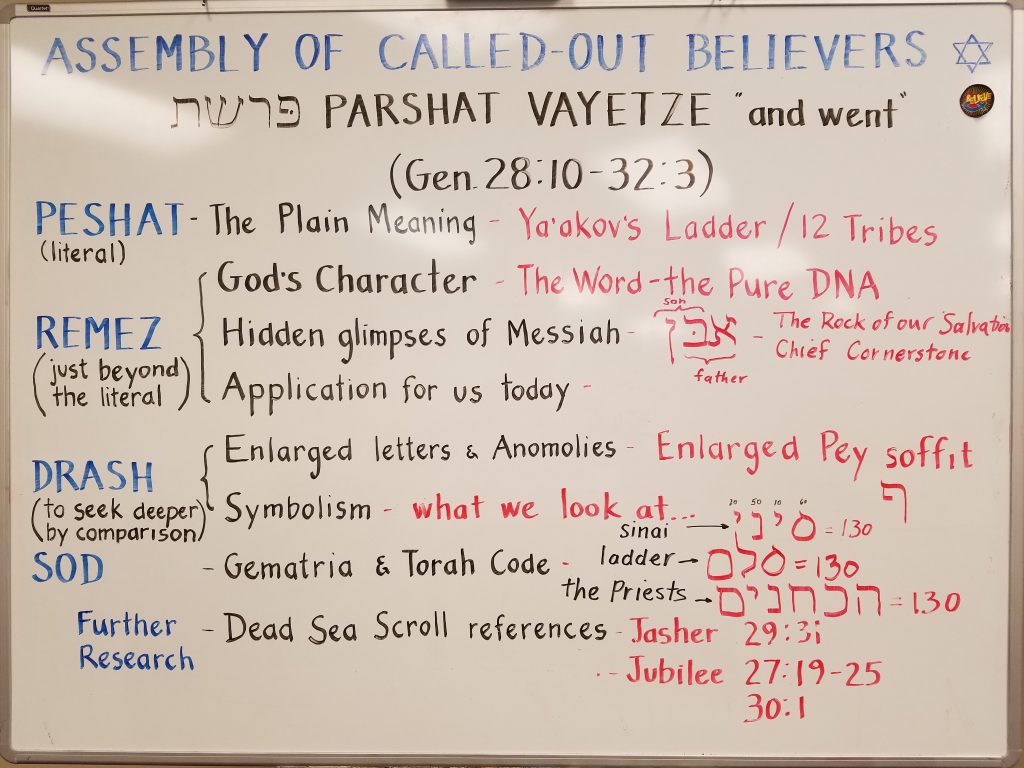 Quartet
ASSEMBLY OF CALLED-OUT BELIEVERS
פרשת PARSHAT VAYETZE "and went"
(Gen. 28:10-32:3)
PESHAT - The Plain Meaning - Ya'akov's Ladder / 12 Tribes
(literal)
God's Character - The Word - the Pure DNA
son
REMEZ
Hidden glimpses of Messiah - אבן - The Rock of our Salvation
Chief Cornerstone
father
(just beyond
the literal)
Application for us today -
Enlarged letters & Anomolies - Enlarged Pey soffit
ף
DRASH
(to seek deeper
by comparison)
Symbolism - what we look at...
10 50 10 60
sinai → סיני = 130
SOD - Gematria & Torah Code - ladder → סלם = 130
the Priests → הכחנים = 130
Further
Research
- Dead Sea Scroll references - Jasher 29:31
- Jubilee 27:19-25
30:1